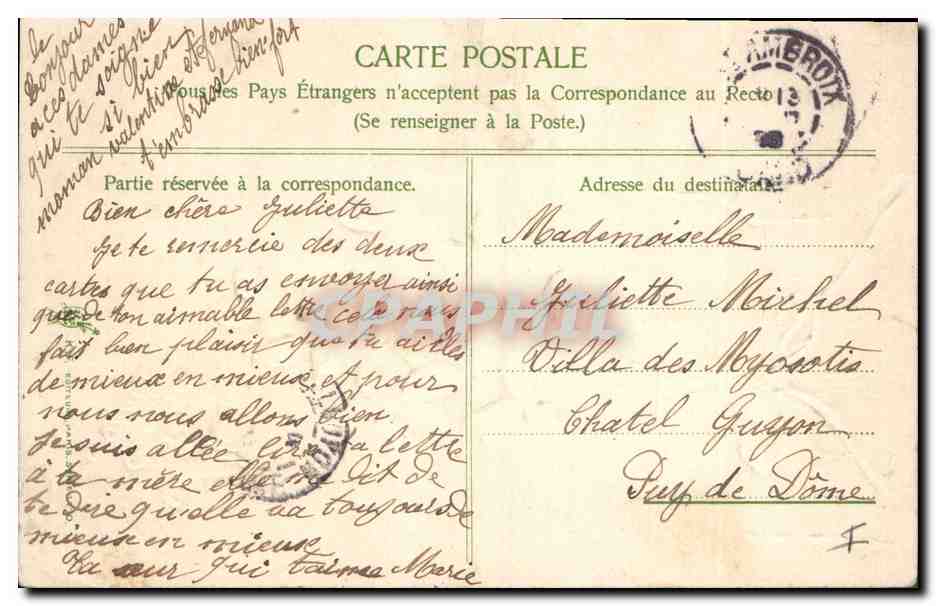 CARTE POSTALE
Tous les Pays Étrangers n'acceptent pas la Correspondance au Recto
(Se renseigner à la Poste.)
Partie réservée à la correspondance.
Adresse du destinataire
le
bonjour
a ces dames
qui te soigne
si bien
maman valentine et fernand
t'embrasse bien fort
Bien chère Juliette
Je te remercie des deux
cartes que tu as envoyer ainsi
que de ton aimable lette cela nous
fait bien plaisir que tu ailles
de mieux en mieux et pour
nous nous allons bien
Je suis allée lire ta lette
à ta mère elle ma dit de
te dire qu'elle va toujours de
mieux en mieux
Ta sœur qui t'aime Marie
Mademoiselle
Juliette Michel
Villa des Myosotis
Chatel Guyon
Puy de Dôme
AMBROIX
13
GARD
CPAPHIL